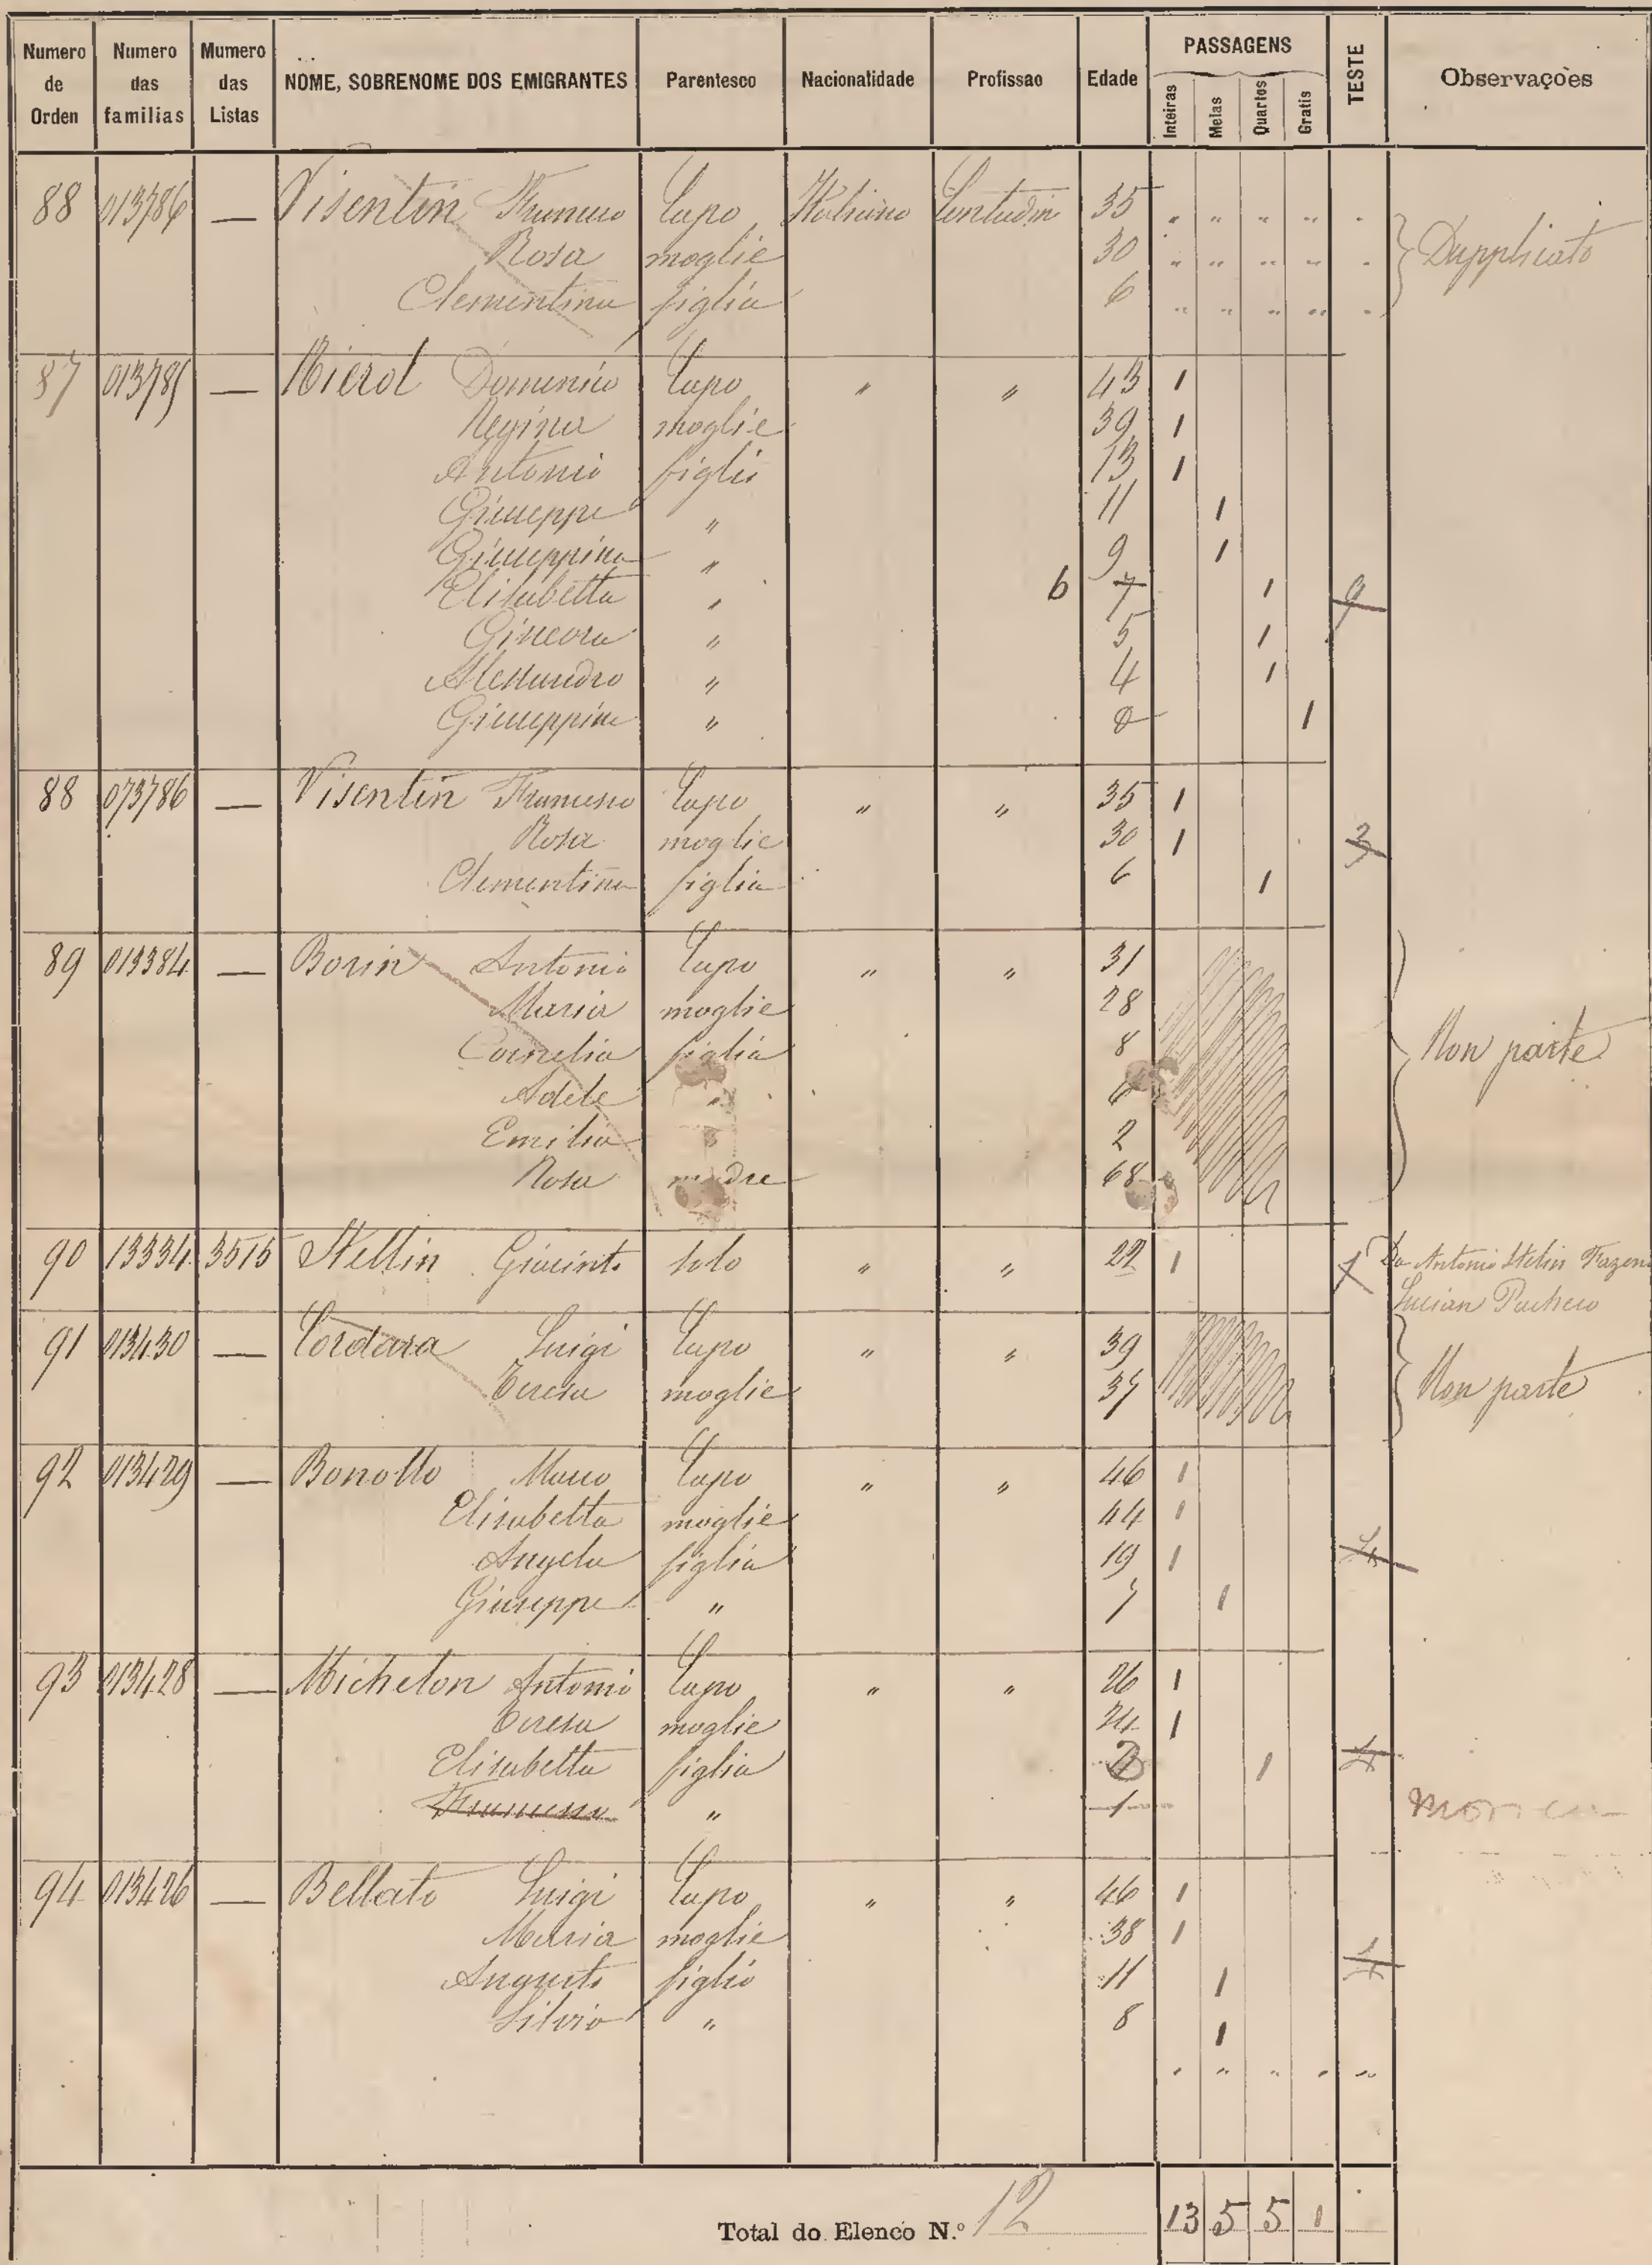 Numero de Orden Numero das familias Mumero das Listas NOME, SOBRENOME DOS EMIGRANTES Parentesco Nacionalidade Profissao Edade PASSAGENS Inteiras Meias Quartos Gratis TESTE Observações
88 013786 — Visentin Francesco Capo Italiano Contadin 35 " " " " " Dupplicato
Rosa moglie 30 " " " " "
Clementina figlia 6 " " " " "
87 013785 — Dominico Capo " " 43 1
Regina moglie 39 1
Antonio figlio 13 1
Giuseppe " 11 1
Giuseppina " 9 1
Elisabetta " 6 7 1 9
Ginevra " 5 1
Alessandro " 4 1
Giuseppina " 0 1
88 073786 — Visentin Francesco Capo " " 35 1
Rosa moglie 30 1 3
Clementina figlia 6 1
89 013384 — Borin Antonio Capo " " 31
Maria moglie 28
Cornelia figlia 8 Non parte
Adele " 6
Emilia " 2
Rosa madre 68
90 13334 3515 Stellin Giacinto solo " " 22 1 1 Da Antonio Stelin Fazen
Lucian Pacheco
91 013430 — Cordara Luigi Capo " " 39
Teresa moglie 37 Non parte
92 013429 — Bonotto Marco Capo " " 46 1
Elisabetta moglie 44 1
Angela figlia 19 1 4
Giuseppe " 7 1
93 013428 — Michelon Antonio Capo " " 26 1
Teresa moglie 24 1
Elisabetta figlia 1 4
Francesco " 1
94 013426 — Bellato Luigi Capo " " 46 1
Maria moglie 38 1
Augusto figlio 11 1 4
Silvio " 8 1
" " " " "
Total do Elenco N.º 12 13 5 5 1